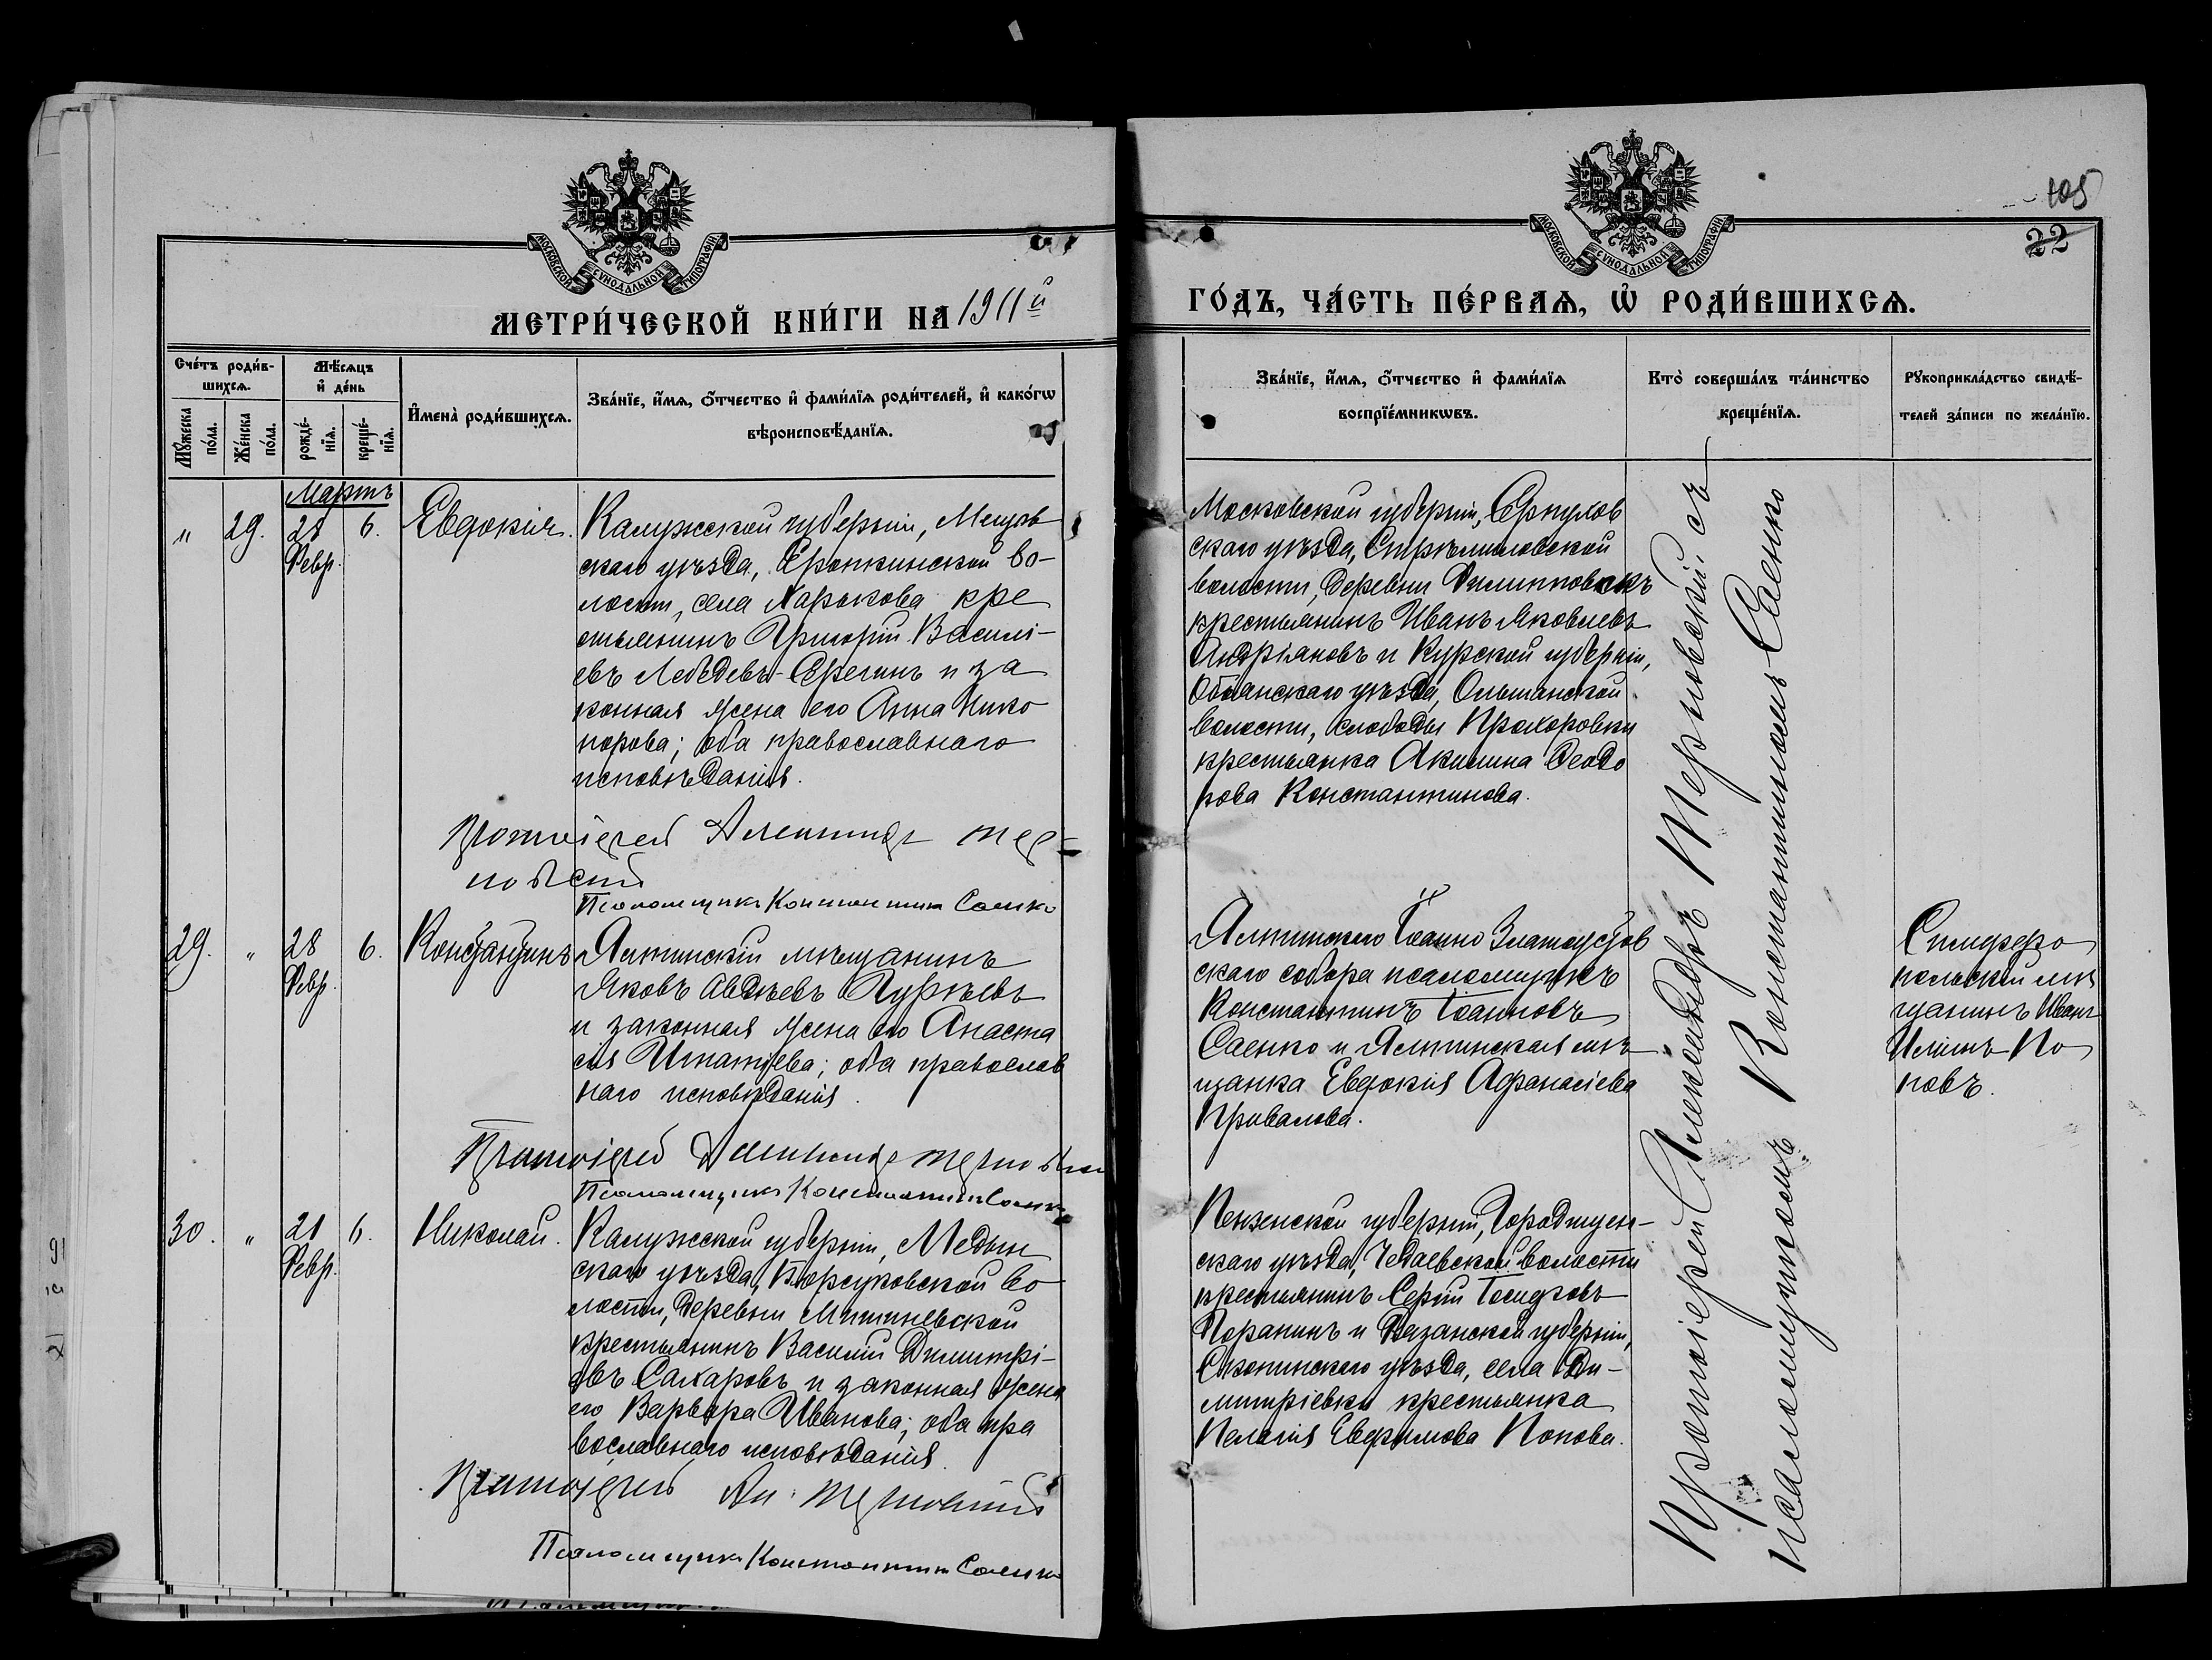 105
22
МОСКОВСКОЙ СѴНОДАЛЬНОЙ ТИПОГРАФІИ
МОСКОВСКОЙ СѴНОДАЛЬНОЙ ТИПОГРАФІИ
МЕТРИ́ЧЕСКОЙ КНИ́ГИ НА 1911й
ГО́ДЪ, ЧА́СТЬ ПЕ́РВАѦ, Ѡ҆ РОДИ́ВШИХСѦ.
Сче́тъ роди́в-
шихсѧ.
Мꙋ́жеска по́ла.
Же́нска по́ла.
Мѣ́сѧцъ
и҆ де́нь
рожде́-
нїѧ.
креще́-
нїѧ.
И҆мена̀ роди́вшихсѧ.
Зва́нїе, и҆́мѧ, ѻ҆́тчество и҆ фами́лїѧ роди́телей, и҆ како́гѡ
вѣроисповѣ́данїѧ.
Зва́нїе, и҆́мѧ, ѻ҆́тчество и҆ фами́лїѧ
воспрїе́мникѡвъ.
Кто̀ соверша́лъ та́инство
креще́нїѧ.
Рꙋкоприкла́дство свидѣ́-
телей за́писи по жела́нїю.
Мартъ
" 29. 28 6. Евдокія.
Февр.
Калужской губерніи, Мещов
скаго уѣзда, Еропкинской во-
лости, села Харькова кре
стьянинъ Григорій Василі-
евъ Лебедевъ-Серегинъ и за
конная жена его Анна Нико
норова; оба православнаго
исповѣданія.
Протоіерей Александр Тер-
новскій
Псаломщикъ Константин Саенко
Московской губерніи, Серпухов
скаго уѣзда, Стрѣлиловской
волости, деревни Филипповскъ
крестьянинъ Иванъ Яковлевъ
Андріяновъ и Курской губерніи,
Обоянскаго уѣзда, Ольшанской
волости, слободы Прохоровки
крестьянка Акилина Ѳеодо
рова Константинова.
29. " 28 6. Константинъ
Февр.
Ялтинскій мѣщанинъ
Яковъ Авдѣевъ Гурѣевъ
и законная жена его Анаста
сія Игнатіева; оба православ
наго исповѣданія.
Протоіерей Александр Терновскій
Псаломщикъ Константин Саенко
Ялтинскаго Іоанно Златоустов
скаго собора псаломщикъ
Константинъ Іоанновъ
Саенко и Ялтинская мѣ
щанка Евдокія Афанасіева
Привалова.
Симферо
польскій мѣ
щанинъ Иванъ
Иліинъ По
повъ.
30. " 21 6. Николай.
Февр.
Калужской губерніи, Медын
скаго уѣзда, Кюрсуковской во
лости, деревни Митинѣвской
крестьянинъ Василій Димитрі-
евъ Сахаровъ и законная жена
его Варвара Иванова; оба пра
вославнаго исповѣданія.
Протоіерей Ал. Терновскій
Псаломщикъ Константин Саенко
Пензенской губерніи, Городищен-
скаго уѣзда, Чедаевской волости
крестьянинъ Сергій Іосифовъ
Поранинъ и Рязанской губерніи,
Скопинскаго уѣзда, села Ди-
митріевки крестьянка
Пелагія Евфимова Попова.
Протоіерей Александръ Терновскій съ
псаломщикомъ Константиномъ Саенко